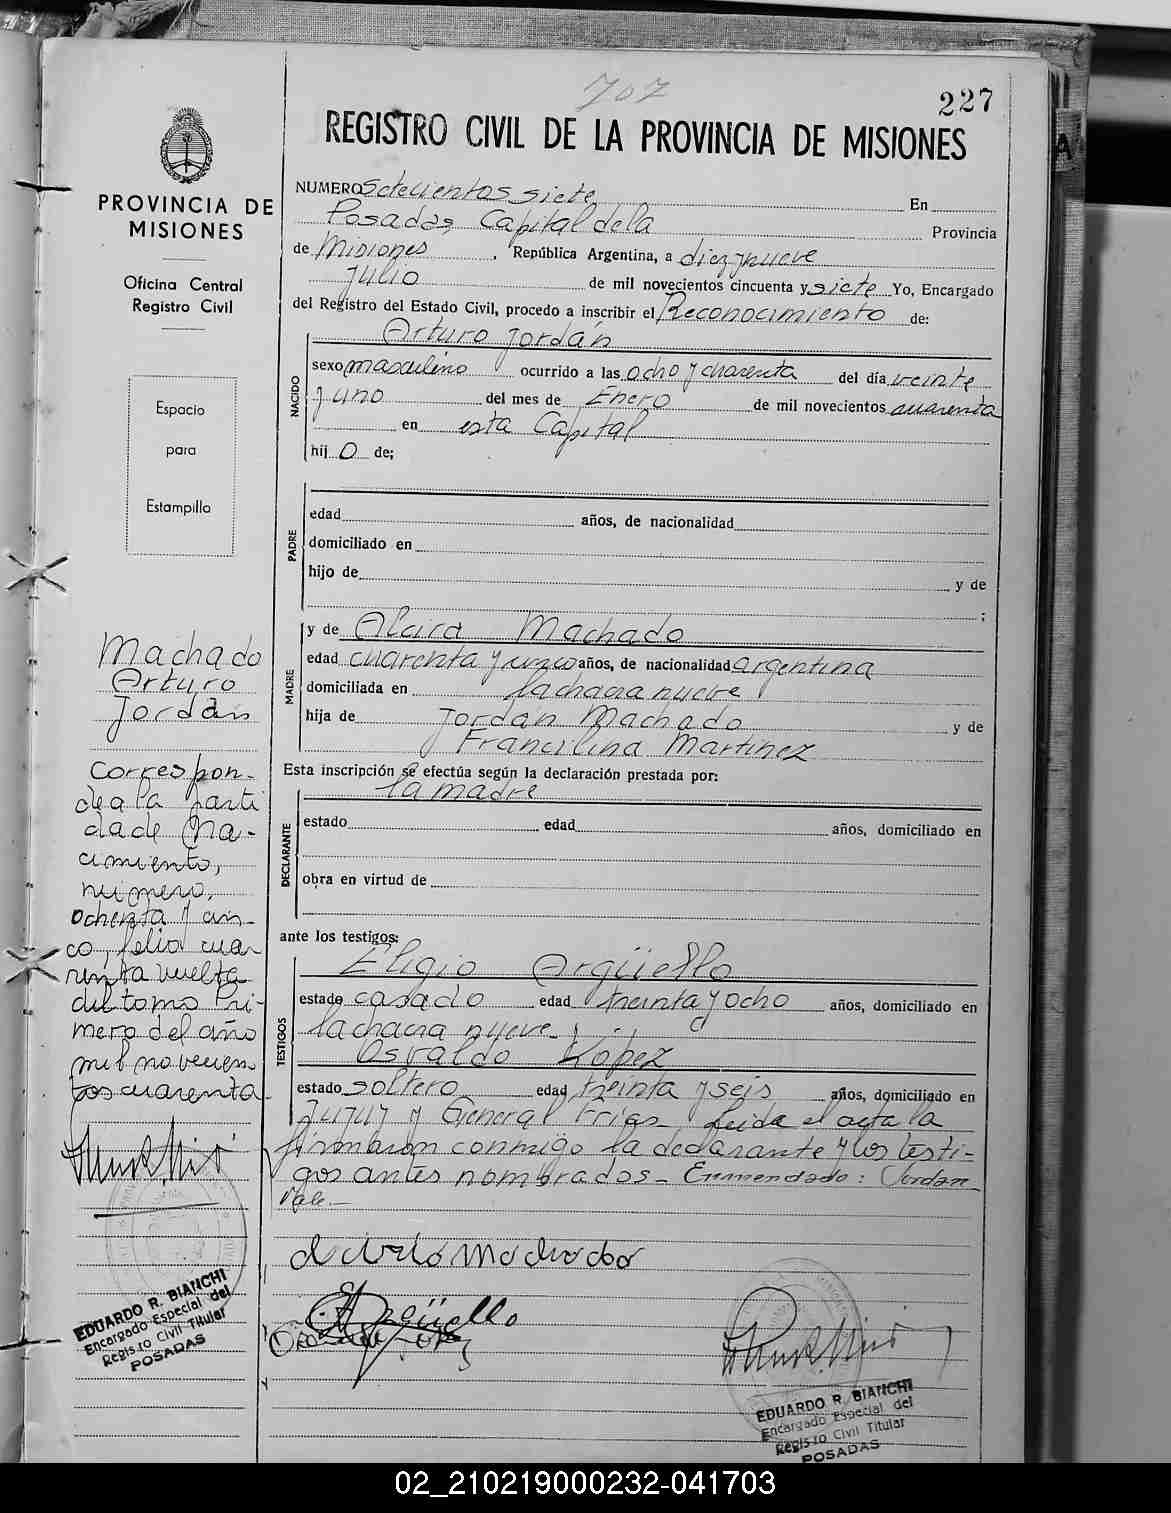 707
227
REGISTRO CIVIL DE LA PROVINCIA DE MISIONES
PROVINCIA DE
MISIONES
Oficina Central
Registro Civil
Espacio
para
Estampilla
Machado
Arturo
Jordán
Correspon-
de a la parti
da de Na-
cimiento,
número,
ochenta y cin-
co, folio cua-
renta vuelta
del tomo Pri-
mero del año
mil novecien
tos cuarenta
EDUARDO R. BIANCHI
Encargado Especial del
Registro Civil Titular
POSADAS
NUMERO Setecientos siete En
Posadas, Capital de la Provincia
de Misiones, República Argentina, a diez y nueve
Julio de mil novecientos cincuenta y siete Yo, Encargado
del Registro del Estado Civil, procedo a inscribir el Reconocimiento de:
Arturo Jordán
NACIDO
sexo masculino ocurrido a las ocho y cuarenta del día veinte
y uno del mes de Enero de mil novecientos cuarenta
en esta Capital
hij o de;
PADRE
edad años, de nacionalidad
domiciliado en
hijo de y de
;
MADRE
y de Alcira Machado
edad cuarenta y cinco años, de nacionalidad argentina
domiciliada en la chacra nueve
hija de Jordán Machado y de
Francilina Martinez
Esta inscripción se efectúa según la declaración prestada por:
la madre
DECLARANTE
estado edad años, domiciliado en
obra en virtud de
ante los testigos:
Eligio Argüello
TESTIGOS
estado casado edad treinta y ocho años, domiciliado en
la chacra nueve
Osvaldo Lopez
estado soltero edad treinta y seis años, domiciliado en
Jujuy y General Frias. Leida el acta la
firmaron conmigo la declarante y los testi-
gos antes nombrados - Enmendado: Jordan
Vale -
Machado
Argüello
EDUARDO R. BIANCHI
Encargado Especial del
Registro Civil Titular
POSADAS
02_210219000232-041703